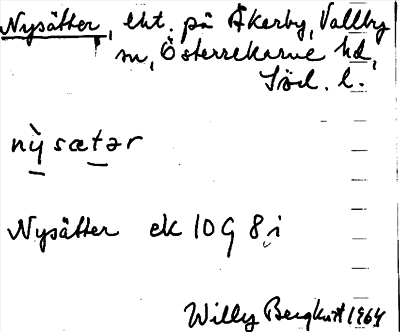 Nysätter, lht. på Åkerby, Vallby
sn, Österrekarne hd,
Söd. l.
nỳsætər
Nysätter ek 10G 8i
Willy Bergkvist 1964